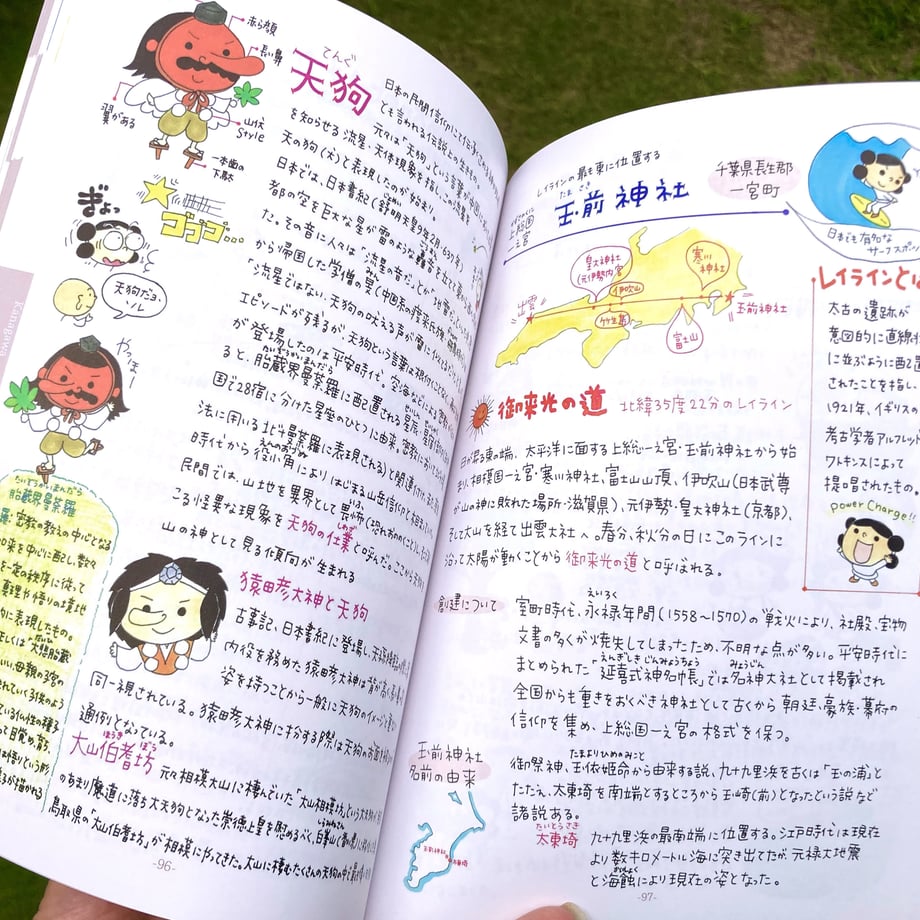 赤ら顔
長い鼻
翼がある
山伏
style
一本歯の
下駄
てんぐ
天狗
日本の民間信仰にて伝承さ
とも言われる伝説上の生きもの。
元々は「天狗」という言葉が
を知らせる流星、天体現象を指し、この流星を
天の狗(犬)と表現したのが始まり。
日本では、日本書紀(舒明天皇9年2月・637年)
都の空を巨大な星が雷のような轟音を立てて
た。その音に人々は「流星の音だ」とか「地雷
から帰国した学僧の旻
「流星ではない。天狗の吠える声が雷に似て
エピソードが残るが、天狗という言葉は根付くことなく
が登場したのは平安時代。空海などによる
ると、胎蔵界曼荼羅に配置される星辰・星宿
国で28宿に分けた星座のひとつに由来、密教
法に用いる北斗曼荼羅に表現される)と関連付け
時代から役小角によりはじまる山岳信仰と相まって
民間では、山地を異界として畏怖(恐れおののくこと)し、そこで
こる怪異な現象を天狗の仕業と呼んだ。ここから天狗を
山の神として見る傾向が生まれる
ぎょっ
ゴゴゴ…
天狗だョ
ノレ
やっほー!
Kanagawa
たいぞうかいまんだら
胎蔵界曼荼羅
密教の教えの中心となる
如来を中心に配し、数々
を一定の秩序に従って
真理や悟りの境地
的に表現したもの。
正しくは「大悲胎蔵
猿田彦大神と天狗
古事記、日本書紀に登場し、天孫降臨の
内役を務めた猿田彦大神は背が高く鼻
姿を持つことから一般に天狗のイメージと
同一視されている。猿田彦大神に扮する際は天狗のお面を
通例となっている。
ほうき ぼう
大山伯耆坊
元々相模大山に棲んでいた「大山相模坊」という大天狗が
のあまり魔道に落ち大天狗となった崇徳上皇を慰めるべく白峯山
鳥取県の「大山伯耆坊」が相模にやってきた。大山に棲むたくさんの天狗の中で
-96-
レイラインの最も東に位置する
たま さき
玉前神社
上総国
一之宮
千葉県長生郡
一宮町
日本でも有名な
サーフスポット
皇大神社
(元伊勢内宮
伊吹山
寒川
神社
出雲
竹生島
富士山
玉前神社
御来光の道 北緯35度22分のレイライン
日が昇る東の端、太平洋に面する上総一之宮・玉前神社から始
まり相模國一之宮・寒川神社、富士山山頂、伊吹山(日本武尊
が山の神に敗れた場所・滋賀県)、元伊勢・皇大神社(京都)、
そして大山を経て出雲大社へ。春分、秋分の日にこのラインに
沿って太陽が動くことから御来光の道と呼ばれる。
レイラインとは
太古の遺跡が
意図的に直線状
に並ぶように配置
されたことを指し、
1921年、イギリスの
考古学者アルフレッド
ワトキンスによって
提唱されたもの。
Power Charge!!
創建について
えいろく
室町時代、永禄年間(1558〜1570)の戦火により、社殿、宝物
文書の多くが焼失してしまったため、不明な点が多い。平安時代に
えんぎしき じんみょうちょう みょうじん
まとめられた「延喜式神名帳」では名神大社として掲載され
全国からも重きをおくべき神社として古くから朝廷、豪族、幕府の
信仰を集め、上総国一之宮の格式を保つ。
玉前神社
名前の由来
たまよりひめのみこと
御祭神、玉依姫命から由来する説、九十九里浜を古くは「玉の浦」と
たたえ、太東埼を南端とするところから玉崎(前)となったという説など
諸説ある。
たいとうさき
太東埼
九十九里浜の最南端に位置する。江戸時代は現在
より数キロメートル海に突き出てたが、元禄大地震
かいしょく
と海蝕により現在の姿となった。
玉前神社
太東埼
-97-